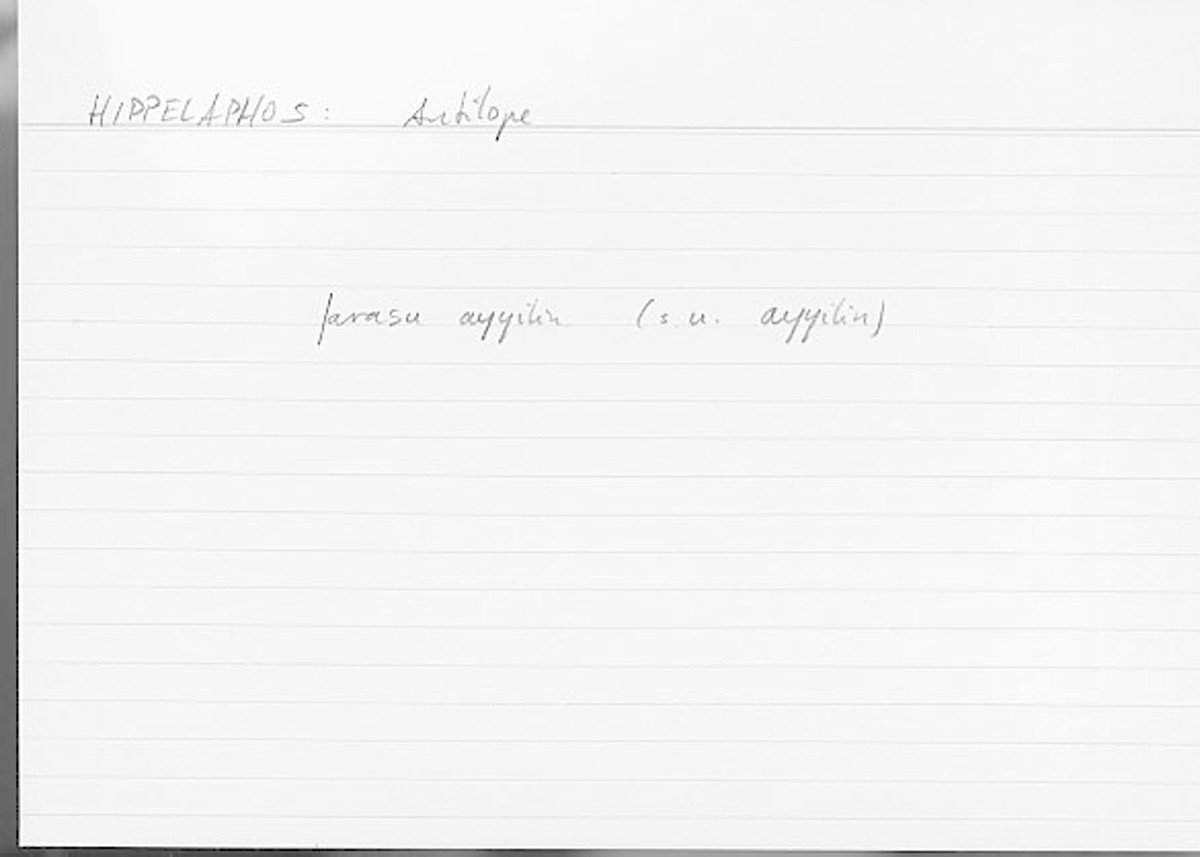 HIPPELAPHOS: Antilope
farasu ayyilin (s. u. ayyilin)